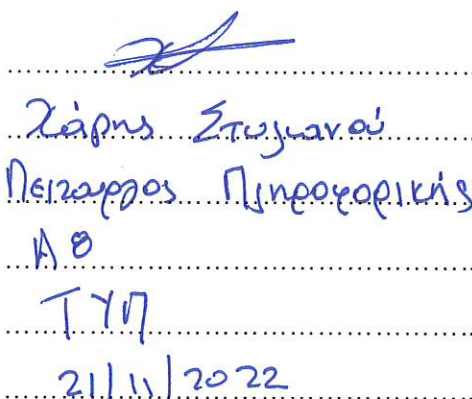 Χάρης Στυλιανού
Λειτουργός Πληροφορικής
Α8
ΤΥΠ
21/11/2022